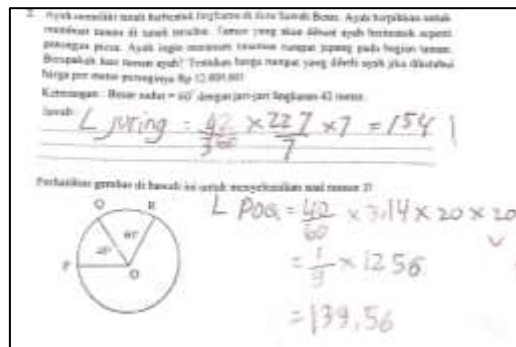 2. Ayah memiliki tanah berbentuk lingkaran di Kota Sawah Besar. Ayah berpikiran untuk
membuat taman di tanah tersebut. Taman yang akan dibuat ayah berbentuk seperti
potongan pizza. Ayah ingin menanam tanaman rumput jepang pada bagian taman.
Berapakah luas taman ayah? Tentukan harga rumput yang dibeli ayah jika diketahui
harga per meter perseginya Rp 12.000,00!
Keterangan: Besar sudut = 60° dengan jari-jari lingkaran 42 meter.
Jawab:
L juring = 42/360 × 227/7 × 7 = 154
Perhatikan gambar di bawah ini untuk menyelesaikan soal nomor 3!
Q R
P O
L POQ = 40/60 × 3,14 × 20 × 20
= 1/9 × 1256
= 139,56